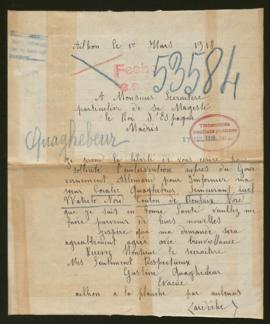 Ailhon le 1r Mars 1918
Fech
53584
A Monsieur Secrétaire
particulier de sa Majesté
le Roi d'Espagne
Madrid
Quaghebeur
Je prend la liberté de vous écrire pour
solliciter l'intervention auprès du Gouv
ernement Allemand pour informer ma
sœur Coralie Quaghebeur demeurant
que je suis en bonne Santé veuillez me
faire parvenir de leurs nouvelles
J'espère que ma demande sera
agréablement agréé avec bienveillance
Recevez Monsieur le secrétaire
Mes Sentiments Respectueux
Gustave Quaghebeur
Evacué
ailhon a la planche par aubenas
Ardèche